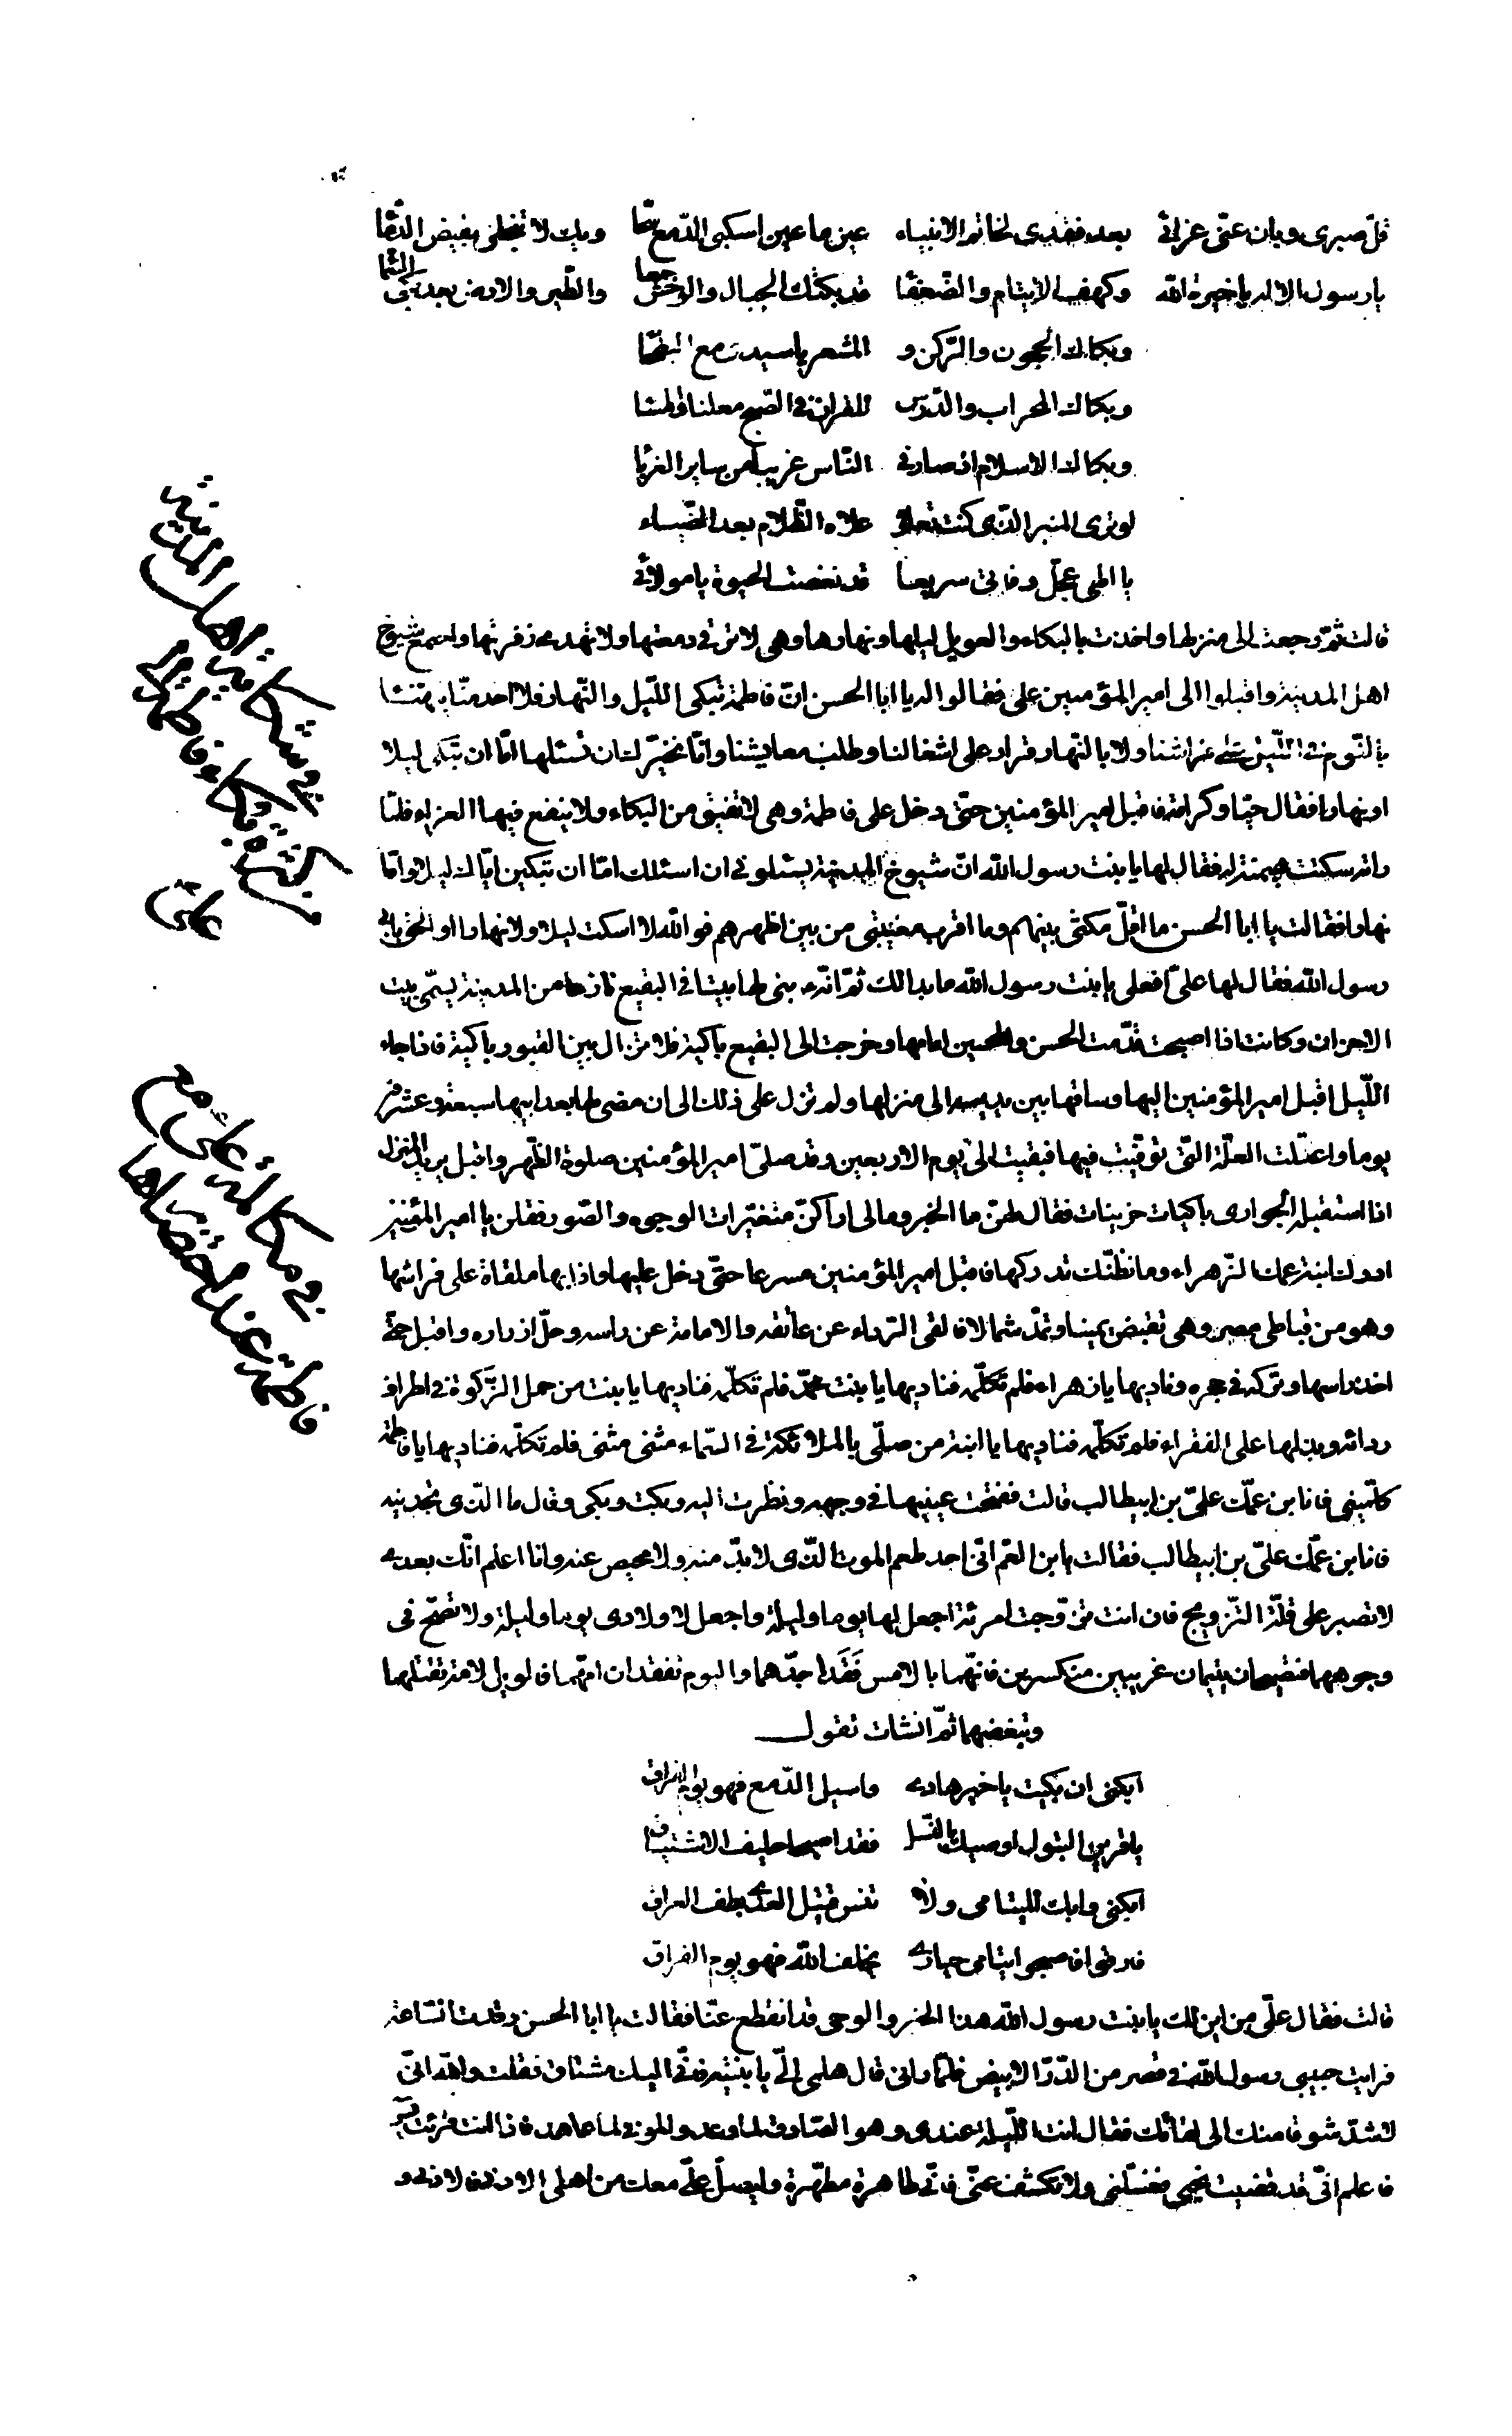 قلّ صبرى وبان عنّى عزائى بعد فقدى لخاتم الانبياء عين يا عين اسكبى الدّمع سحّا ويك لا تبخلى بفيض الدّما
يا رسول الاله يا خيرة الله وكهف الايتام والضّعفا قد بكتك الجبال والوحش جمعا والطّير والارض بعد بكى السّما
وبكاك الحجون والرّكن و المشعر يا سيدى مع البطحا
وبكاك المحراب والدّرس للقران فى الصّبح معلنا والمسا
وبكاك الاسلام اذ صار فى النّاس غريبا من ساير الغربا
لو ترى المنبر الذّى كنت تعلوه علاه الظّلام بعد الضّياء
يا الهى عجّل وفاتى سريعا قد نغصت الحيوة يا مولائى
قالت ثمّ رجعت الى منزلها واخذت بالبكاء والعويل ليلها ونهارها وهى لا ترقى دمعتها ولا تهدء زفرتها واجتمع شيوخ
اهل المدينة واقبلوا الى امير المؤمنين على فقالوا له يا ابا الحسن انّ فاطمة تبكى اللّيل والنّهار فلا احد منّا يتهنّا
بالنّوم فى اللّيل على فراشنا ولا بالنّهار قرار على اشغالنا وطلب معايشنا وانّا نخبّرك ان تسئلها امّا ان تبكى ليلا
او نهارا فقال حبّا وكرامة فاقبل امير المؤمنين حتّى دخل على فاطمة وهى لا تفيق من البكاء ولا ينفع فيها العزاء فلمّا
راته سكتت هيئة له فقال لها يا بنت رسول الله انّ شيوخ المدينة يسئلونى ان اسئلك امّا ان تبكين اباك ليلا وامّا
نهارا فقالت يا ابا الحسن ما اقلّ مكثى بينهم وما اقرب مغيبى من بين اظهرهم فو الله لا اسكت ليلا ولا نهارا او الحق بابى
رسول الله فقال لها علىّ افعلى يا بنت رسول الله ما بدا لك ثمّ انّه بنى لها بيتا فى البقيع نازحا من المدينة يسمّى بيت
الاحزان وكانت اذا اصبحت قدّمت الحسن والحسين امامها وخرجت الى البقيع باكية فلا تزال بين القبور باكية فاذا جاء
اللّيل اقبل امير المؤمنين اليها وساقها بين يديه الى منزلها ولم تزل على ذلك الى ان مضى لها بعد ابيها سبعة وعشرون
يوما واعتلّت العلّة الّتى توفّيت فيها فبقيت الى يوم الاربعين وقد صلّى امير المؤمنين صلوة الظّهر واقبل يريد المنزل
اذا استقبله الجوارى باكيات حزينات فقال لهنّ ما الخبر وما لى اراكنّ متغيّرات الوجوه والصّور فقلن يا امير المؤمنين
ادرك ابنة عمك الزّهراء وما نظنّك تدركها فاقبل امير المؤمنين مسرعا حتّى دخل عليها واذا بها ملقاة على فراشها
وهو من قباطى مصر وهى تقبض يمينا وتمدّ شمالا فالقى الرّداء عن عاتقه والامامة عن راسه وحلّ ازراره واقبل حتّى
اخذ راسها وتركه فى حجره وناديها يا زهراء فلم تكلّمه فناديها يا بنت محمّد فلم تكلّمه فناديها يا بنت من حمل الزّكوة فى اطراف
ردائه وبذلها على الفقراء فلم تكلّمه فناديها يا ابنة من صلّى بالملائكة فى السّماء مثنى مثنى فلم تكلّمه فناديها يا فاطمة
كلّمينى فانا ابن عمّك علىّ بن ابيطالب قالت ففتحت عينيها فى وجهه ونظرت اليه وبكت وبكى وقال ما الذّى تجدينه
فانا ابن عمّك علىّ بن ابيطالب فقالت يا بن العّم انّى اجد طعم الموت الذّى لا بدّ منه ولا محيص عنه وانا اعلم انّك بعدى
لا تصبر على قلّة التّزويج فان انت تزوّجت امرئة اجعل لها يوما وليلة واجعل لاولادى يوما وليلة ولا تصحّ فى
وجوههما فيصبحان يتيمان غريبين منكسرين فانّهما بالامس فقدا جدّهما واليوم تفقدان امّهما فالويل لامة تقتلهما
وتبغضهما ثمّ انشات تقول
ابكنى ان بكيت يا خير هادى واسبل الدّمع فهو يوم الفراق
يا قرين البتول اوصيك بالنّسل فقد اصبحا حليف الاشتياق
ابكنى وابك لليتامى ولا تنس قتيل العدى بطف العراق
فارقوا فاصبحوا ايتامى حيارى يخلف الله فهو يوم الفراق
قالت فقال علّى من اين لك يا بنت رسول الله هذا الخبر والوحى قد انقطع عنّا فقالت يا ابا الحسن رقدت السّاعة
فرايت حبيبى رسول الله فى قصر من الدّرّ الابيض فلمّا رانى قال هلمى الىّ يا بنيّه فانّى اليك مشتاق فقلت والله انّى
لاشدّ شوقا منك الى لقائك فقال انت اللّيلة عندى وهو الصّادق لما وعد والموفى لما عاهد فاذا انت قرئت يس
فاعلم انّى قد قضيت نحبى فغسّلنى ولا تكشف عنّى فانّى طاهرة مطهّرة وليصلّ علّى معك من اهلى الادنى فالادنى و
فى شكاية اهل المدينة
من كثرة بكاء فاطمة الى
على
فى مكالمة على مع
فاطمة عند احتضارها